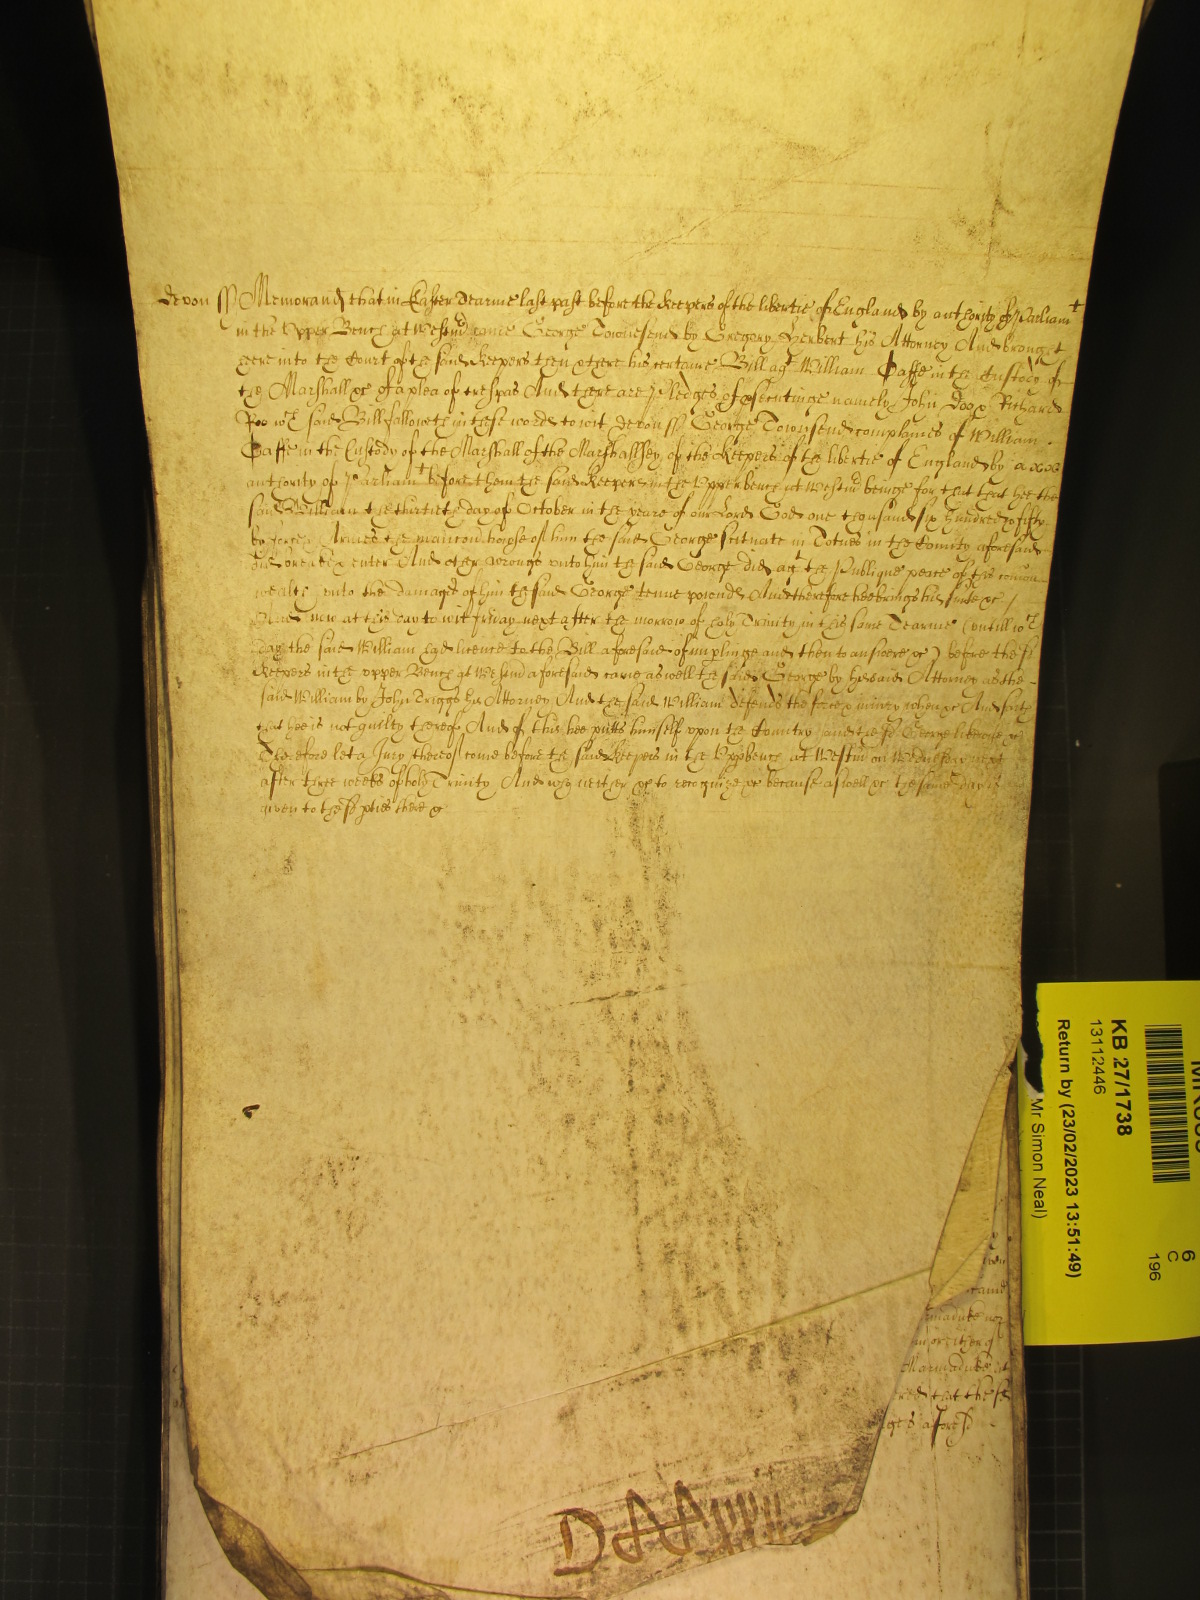 Devon ss Memorand that in Easter Tearme last past before the Keepers of the libertie of England by authority of Parliamt
in the Upper Bench at Westmd came George Townesend by Gregory Herbert his Attorney And brought
heere into the Court of the said Keepers then & there his certaine Bill agt William Gaffe in the Custody of
the Marshall &c of a plea of trespas And there are Pledges of psecutinge namely John Doo & Richard
Roo wch said Bill followeth in these words to wit Devon ss George Townsend complaines of William
Gaffe in the Custody of the Marshall of the Marshallsey of the Keepers of the libertie of England by
authority of Parliamt before them the said Keepers in the Upper bench at Westmd beinge for that that hee the
said William the thirtieth day of October in the yeare of our Lord God one thousand six hundred & fifty
by force & Armes the mancon howse of him the said George scituate in Totnes in the County aforesaid
did breake & enter And other wrongs unto him the said George did agt the Publique peace of this comon
wealth unto the damage of him the said George tenne pounds And therefore hee brings his suite &c /
And now at this day to wit fryday next after the morrow of holy Trinity in this same Tearme (untill wch
day the said William had licence to the Bill aforesaid of implinge and then to answere &c) before the sd
Keepers in the upper Bench at Westmd aforesaid came as well the said George by his said Attorney as the
said William by John Triggs his Attorney And the said William defends the force & iniury when &c And saith
that hee is not guilty thereof And of this hee putts himself upon the Countrey and the sd George likewise &c
Therefore let a Jury thereof come before the said Keepers in the Upp bench at Westm on Wednesday next
after three weeks of holy Trinity And who neither &c to recognize &c because aswell &c the same day is
given to the sd pties there &c
came
maduke
Marmaduke
that the
ges aforesd
KB 27/1738
13112446
Return by (23/02/2023 13:51:49)
Mr Simon Neal)
6
C
196